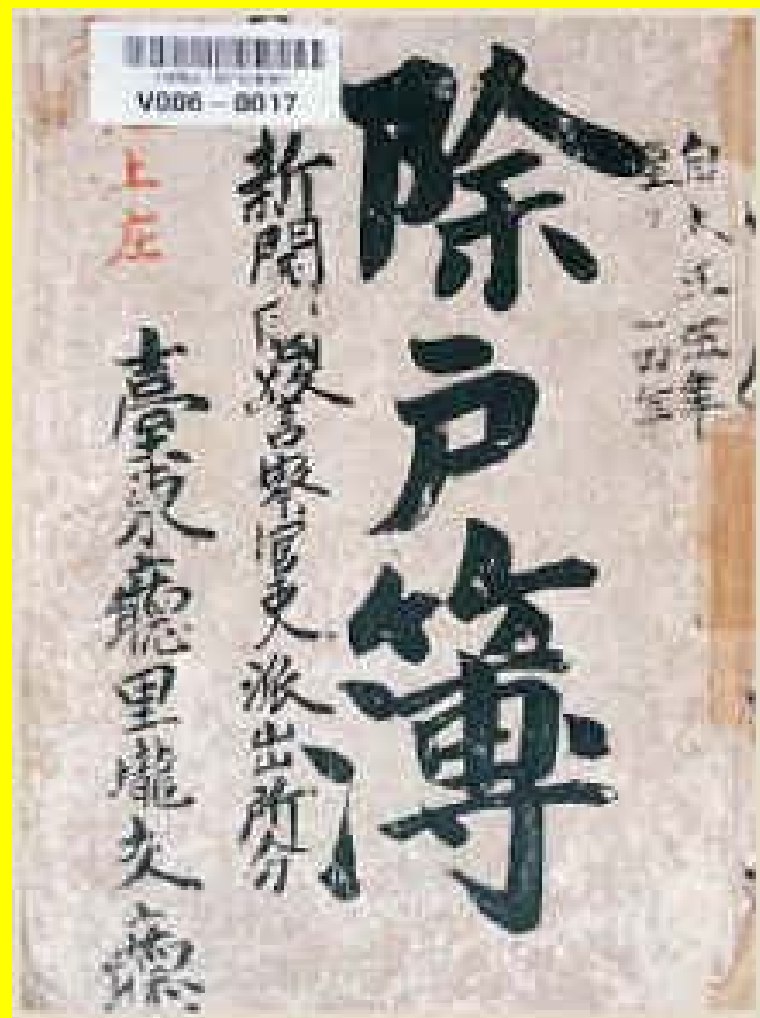 V006-0017
自大正五年
至〃一四年
除戶簿
新開園警察官吏派出所分
臺東廳里壠支廳
上庄